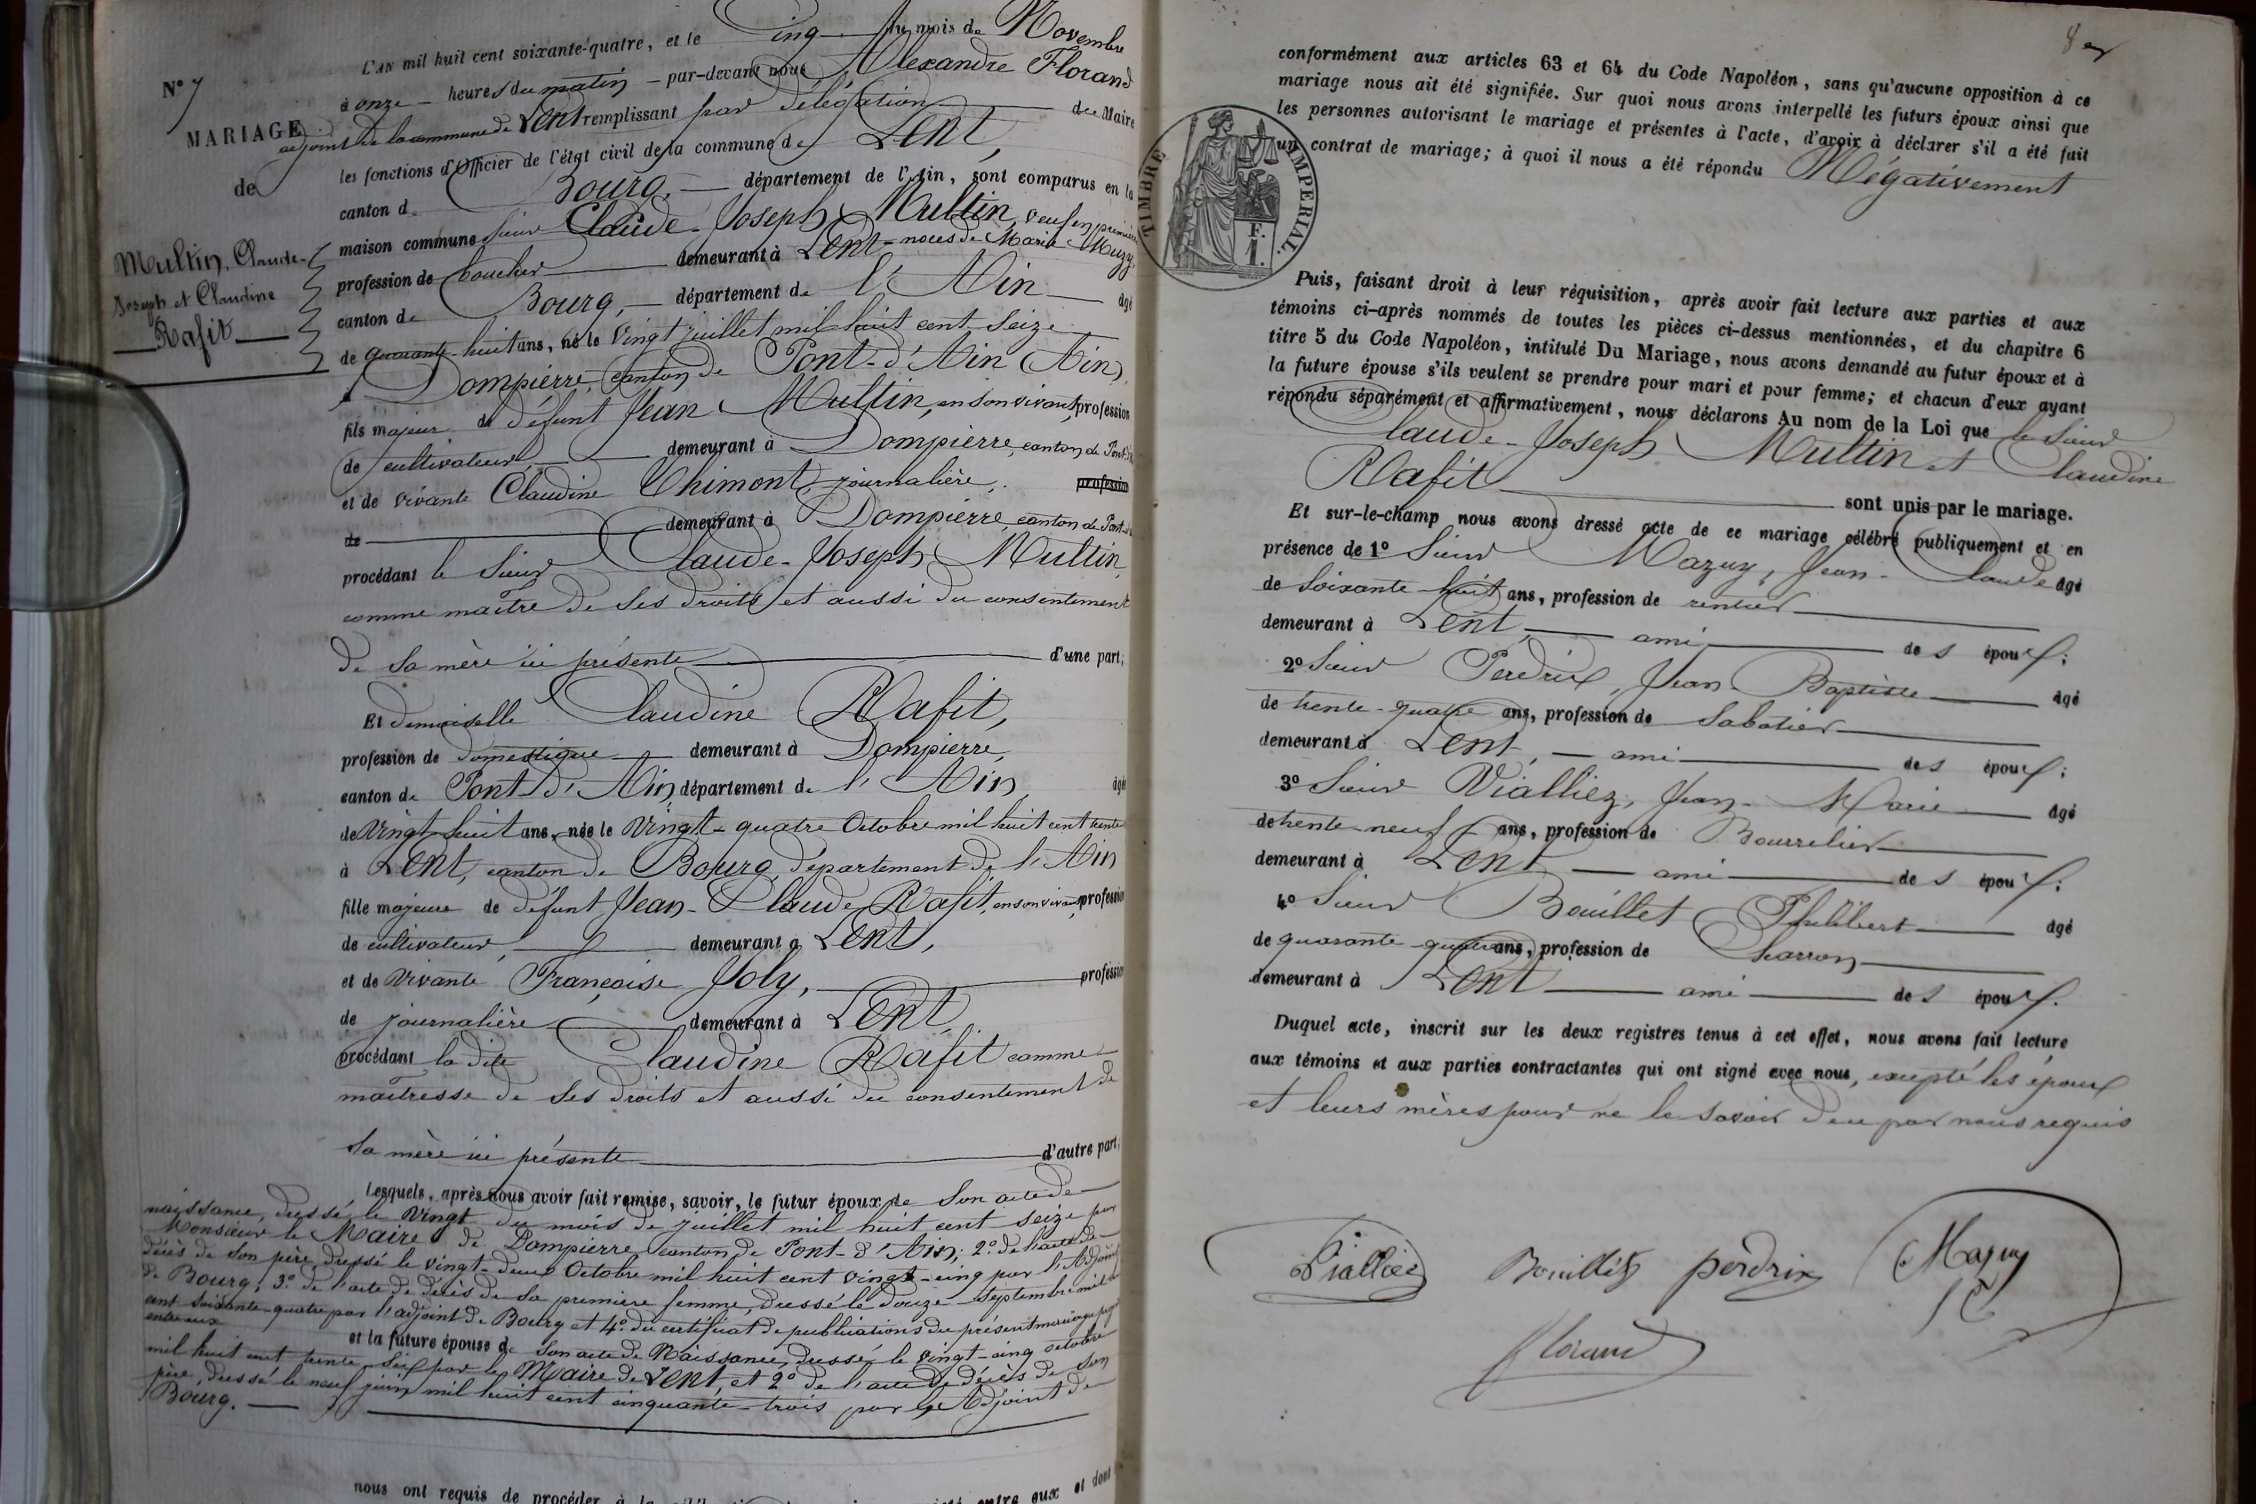 N° 7
MARIAGE
de
Multin, Claude-
Joseph et Claudine
Rafit
L'AN mil huit cent soixante-quatre, et le Cinq du mois de Novembre
à onze heures du matin par-devant nous Alexandre Florand
adjoint de la commune de Lent remplissant par délégation du Maire
les fonctions d'Officier de l'état civil de la commune de Lent,
canton de Bourg, département de l'Ain, sont comparus en la
maison commune sieur Claude-Joseph Multin, veuf en première
profession de boucher demeurant à Lent noces de Marie Muzy,
canton de Bourg, département de l'Ain âgé
de quarante-huit ans, né le vingt juillet mil huit cent seize
à Dompierre, canton de Pont-d'Ain (Ain),
fils majeur de défunt Jean Multin, en son vivant, profession
de cultivateur demeurant à Dompierre, canton de Pont-d'Ain
et de vivante Claudine Chimont, journalière, profession
de demeurant à Dompierre, canton de Pont-d'
procédant le Sieur Claude-Joseph Multin,
comme maître de ses droits et aussi du consentement
de sa mère ici présente d'une part;
Et demoiselle Claudine Rafit,
profession de domestique demeurant à Dompierre,
canton de Pont-d'Ain, département de l'Ain, âgée
de vingt-huit ans, née le vingt-quatre Octobre mil huit cent trente
à Lent, canton de Bourg, département de l'Ain
fille majeure de défunt Jean-Claude Rafit, en son vivant, profession
de cultivateur, demeurant à Lent,
et de vivante Françoise Joly, profession
de journalière demeurant à Lent,
procédant la dite Claudine Rafit comme
maîtresse de ses droits et aussi du consentement de
sa mère ici présente d'autre part,
Lesquels, après nous avoir fait remise, savoir, le futur époux de son acte de
naissance, dressé le vingt du mois de juillet mil huit cent seize par
Monsieur le Maire de Dompierre, canton de Pont-d'Ain; 2° de l'acte de
décès de son père, dressé le vingt-deux Octobre mil huit cent vingt-cinq par l'Adjoint
de Bourg; 3° de l'acte de décès de sa première femme, dressé le douze septembre mil huit
cent soixante-quatre par l'adjoint de Bourg et 4° du certificat de publications du présent mariage
entre eux
et la future épouse de son acte de Naissance, dressé le vingt-cinq octobre
mil huit cent trente-six par le Maire de Lent, et 2° de l'acte de décès de son
père, dressé le neuf juin mil huit cent cinquante-trois par l'Adjoint de
Bourg.
nous ont requis de procéder à la entre eux et dont
8
conformément aux articles 63 et 64 du Code Napoléon, sans qu'aucune opposition à ce
mariage nous ait été signifiée. Sur quoi nous avons interpellé les futurs époux ainsi que
les personnes autorisant le mariage et présentes à l'acte, d'avoir à déclarer s'il a été fait
un contrat de mariage; à quoi il nous a été répondu Négativement
TIMBRE IMPERIAL.
F.
1.
Puis, faisant droit à leur réquisition, après avoir fait lecture aux parties et aux
témoins ci-après nommés de toutes les pièces ci-dessus mentionnées, et du chapitre 6
titre 5 du Code Napoléon, intitulé Du Mariage, nous avons demandé au futur époux et à
la future épouse s'ils veulent se prendre pour mari et pour femme; et chacun d'eux ayant
répondu séparément et affirmativement, nous déclarons Au nom de la Loi que le Sieur
Claude-Joseph Multin et Claudine
Rafit sont unis par le mariage.
Et sur-le-champ nous avons dressé acte de ce mariage célébré publiquement et en
présence de 1° Sieur Mazuy, Jean-Claude âgé
de soixante-huit ans, profession de rentier
demeurant à Lent, ami des époux;
2° Sieur Perdrix, Jean-Baptiste âgé
de trente-quatre ans, profession de Sabotier
demeurant à Lent, ami des époux;
3° Sieur Vialliez, Jean-Marie âgé
de trente-neuf ans, profession de Bourrelier
demeurant à Lent ami des époux;
4° Sieur Bouillet Philibert âgé
de quarante-quatre ans, profession de Charron
demeurant à Lent ami des époux.
Duquel acte, inscrit sur les deux registres tenus à cet effet, nous avons fait lecture
aux témoins et aux parties contractantes qui ont signé avec nous, excepté les époux
et leurs mères pour ne le savoir de ce par nous requis
Vialliez Bouillet perdrix Mazuy
Florand